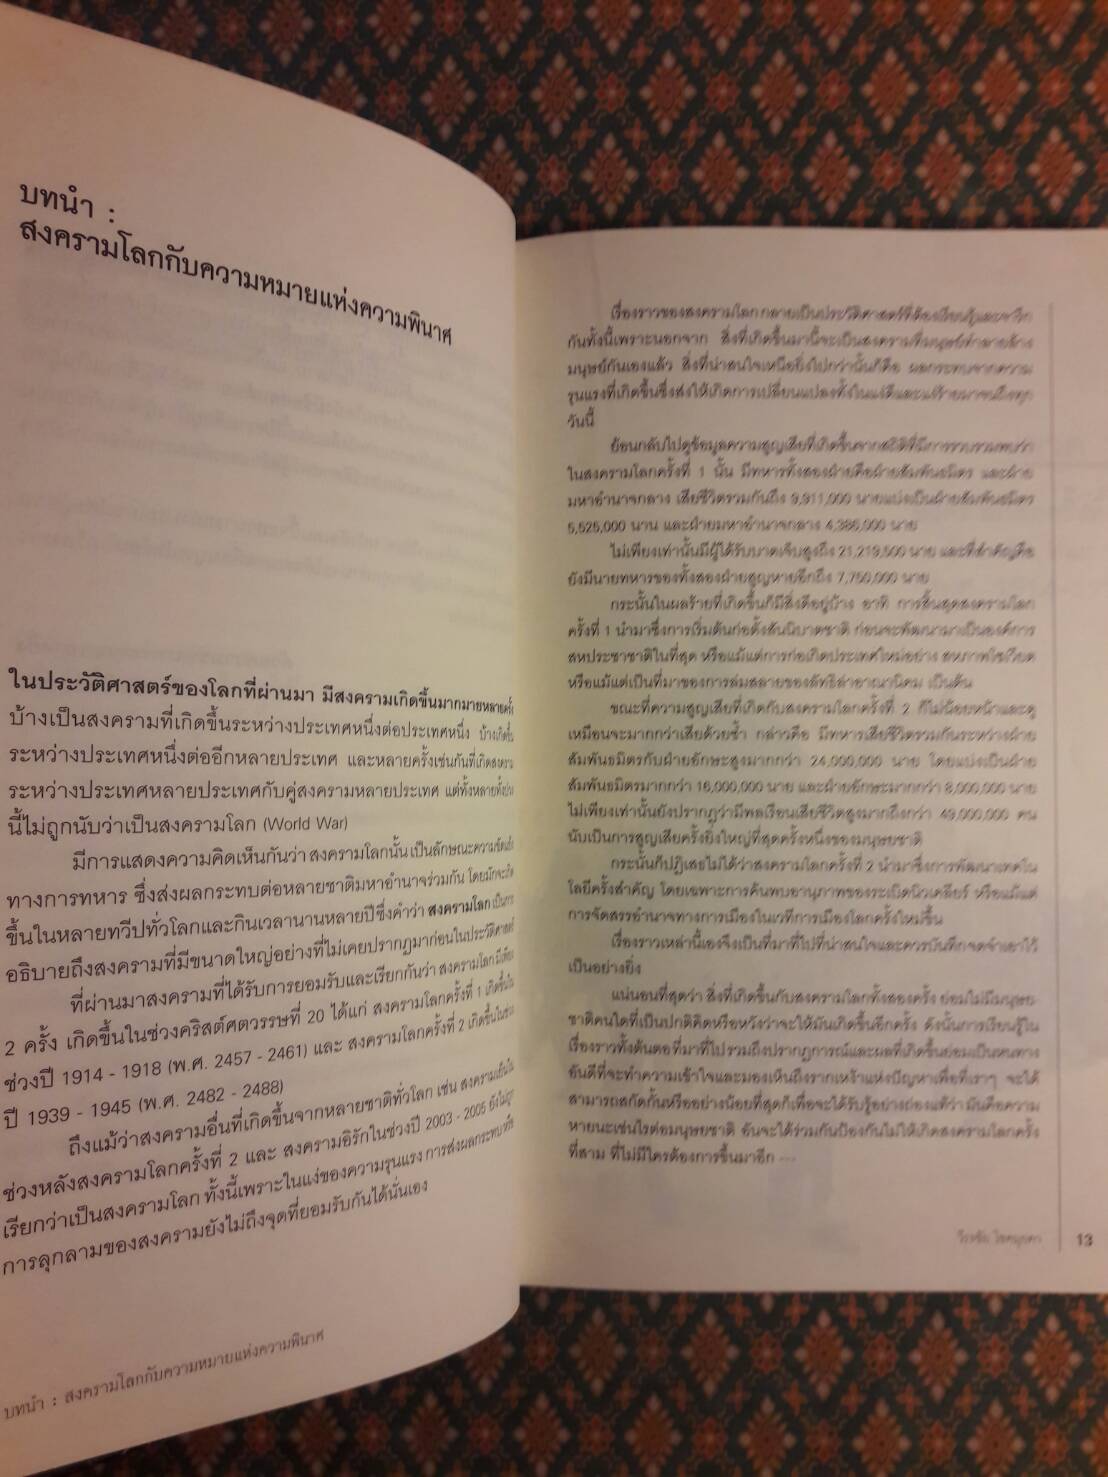 บทนำ :
สงครามโลกกับความหมายแห่งความพินาศ
ในประวัติศาสตร์ของโลกที่ผ่านมา มีสงครามเกิดขึ้นมากมายหลายครั้ง
บ้างเป็นสงครามที่เกิดขึ้นระหว่างประเทศหนึ่งต่อประเทศหนึ่ง บ้างเกิดขึ้น
ระหว่างประเทศหนึ่งต่ออีกหลายประเทศ และหลายครั้งเช่นกันที่เกิดสงคราม
ระหว่างประเทศหลายประเทศกับคู่สงครามหลายประเทศ แต่ทั้งหลายทั้งปวง
นี้ไม่ถูกนับว่าเป็นสงครามโลก (World War)
มีการแสดงความคิดเห็นกันว่า สงครามโลกนั้น เป็นลักษณะความขัดแย้ง
ทางการทหาร ซึ่งส่งผลกระทบต่อหลายชาติมหาอำนาจร่วมกัน โดยมักจะเกิด
ขึ้นในหลายทวีปทั่วโลกและกินเวลานานหลายปีซึ่งคำว่า สงครามโลก เป็นการ
อธิบายถึงสงครามที่มีขนาดใหญ่อย่างที่ไม่เคยปรากฏมาก่อนในประวัติศาสตร์
ที่ผ่านมาสงครามที่ได้รับการยอมรับและเรียกกันว่า สงครามโลก มีเพียง
2 ครั้ง เกิดขึ้นในช่วงคริสต์ศตวรรษที่ 20 ได้แก่ สงครามโลกครั้งที่ 1 เกิดขึ้นใน
ช่วงปี 1914 - 1918 (พ.ศ. 2457 - 2461) และ สงครามโลกครั้งที่ 2 เกิดขึ้นในช่วง
ปี 1939 - 1945 (พ.ศ. 2482 - 2488)
ถึงแม้ว่าสงครามอื่นที่เกิดขึ้นจากหลายชาติทั่วโลก เช่น สงครามเย็นใน
ช่วงหลังสงครามโลกครั้งที่ 2 และ สงครามอิรักในช่วงปี 2003 - 2005 ยังไม่ถูก
เรียกว่าเป็นสงครามโลก ทั้งนี้เพราะในแง่ของความรุนแรง การส่งผลกระทบ หรือ
การลุกลามของสงครามยังไม่ถึงจุดที่ยอมรับกันได้นั่นเอง
บทนำ : สงครามโลกกับความหมายแห่งความพินาศ
เรื่องราวของสงครามโลกกลายเป็นประวัติศาสตร์ที่ต้องเรียนรู้และจารึก
กันทั้งนี้เพราะนอกจาก สิ่งที่เกิดขึ้นมานี้จะเป็นสงครามที่มนุษย์ทำลายล้าง
มนุษย์กันเองแล้ว สิ่งที่น่าสนใจเหนือยิ่งไปกว่านั้นก็คือ ผลกระทบจากความ
รุนแรงที่เกิดขึ้นซึ่งส่งให้เกิดการเปลี่ยนแปลงทั้งในแง่ดีและแง่ร้ายมาจนถึงทุก
วันนี้
ย้อนกลับไปดูข้อมูลความสูญเสียที่เกิดขึ้นจากสถิติที่มีการรวบรวมพบว่า
ในสงครามโลกครั้งที่ 1 นั้น มีทหารทั้งสองฝ่ายคือฝ่ายสัมพันธมิตร และฝ่าย
มหาอำนาจกลาง เสียชีวิตรวมกันถึง 9,911,000 นายแบ่งเป็นฝ่ายสัมพันธมิตร
5,525,000 นาน และฝ่ายมหาอำนาจกลาง 4,386,000 นาย
ไม่เพียงเท่านั้นมีผู้ได้รับบาดเจ็บสูงถึง 21,219,500 นาย และที่สำคัญคือ
ยังมีนายทหารของทั้งสองฝ่ายสูญหายอีกถึง 7,750,000 นาย
กระนั้นในผลร้ายที่เกิดขึ้นก็มีสิ่งดีอยู่บ้าง อาทิ การสิ้นสุดสงครามโลก
ครั้งที่ 1 นำมาซึ่งการเริ่มต้นก่อตั้งสันนิบาตชาติ ก่อนจะพัฒนามาเป็นองค์การ
สหประชาชาติในที่สุด หรือแม้แต่การก่อเกิดประเทศใหม่อย่าง สหภาพโซเวียต
หรือแม้แต่เป็นที่มาของการล่มสลายของลัทธิล่าอาณานิคม เป็นต้น
ขณะที่ความสูญเสียที่เกิดกับสงครามโลกครั้งที่ 2 ก็ไม่น้อยหน้าและดู
เหมือนจะมากกว่าเสียด้วยซ้ำ กล่าวคือ มีทหารเสียชีวิตรวมกันระหว่างฝ่าย
สัมพันธมิตรกับฝ่ายอักษะสูงมากกว่า 24,000,000 นาย โดยแบ่งเป็นฝ่าย
สัมพันธมิตรมากกว่า 16,000,000 นาย และฝ่ายอักษะมากกว่า 8,000,000 นาย
ไม่เพียงเท่านั้นยังปรากฏว่ามีพลเรือนเสียชีวิตสูงมากถึงกว่า 49,000,000 คน
นับเป็นการสูญเสียครั้งยิ่งใหญ่ที่สุดครั้งหนึ่งของมนุษยชาติ
กระนั้นก็ปฏิเสธไม่ได้ว่าสงครามโลกครั้งที่ 2 นำมาซึ่งการพัฒนาเทคโน
โลยีครั้งสำคัญ โดยเฉพาะการค้นพบอานุภาพของระเบิดนิวเคลียร์ หรือแม้แต่
การจัดสรรอำนาจทางการเมืองในเวทีการเมืองโลกครั้งใหม่ขึ้น
เรื่องราวเหล่านี้เองจึงเป็นที่มาที่ไปที่น่าสนใจและควรบันทึกจดจำเอาไว้
เป็นอย่างยิ่ง
แน่นอนที่สุดว่า สิ่งที่เกิดขึ้นกับสงครามโลกทั้งสองครั้ง ย่อมไม่มีมนุษย-
ชาติคนใดที่เป็นปกติคิดหรือหวังว่าจะให้มันเกิดขึ้นอีกครั้ง ดังนั้นการเรียนรู้ใน
เรื่องราวทั้งต้นตอที่มาที่ไปรวมถึงปรากฏการณ์และผลที่เกิดขึ้นย่อมเป็นหนทาง
อันดีที่จะทำความเข้าใจและมองเห็นถึงรากเหง้าแห่งปัญหาเพื่อที่เราๆ จะได้
สามารถสกัดกั้นหรืออย่างน้อยที่สุดก็เพื่อจะได้รับรู้อย่างถ่องแท้ว่า มันคือความ
หายนะเช่นไรต่อมนุษยชาติ อันจะได้ร่วมกันป้องกันไม่ให้เกิดสงครามโลกครั้ง
ที่สาม ที่ไม่มีใครต้องการขึ้นมาอีก ---
13